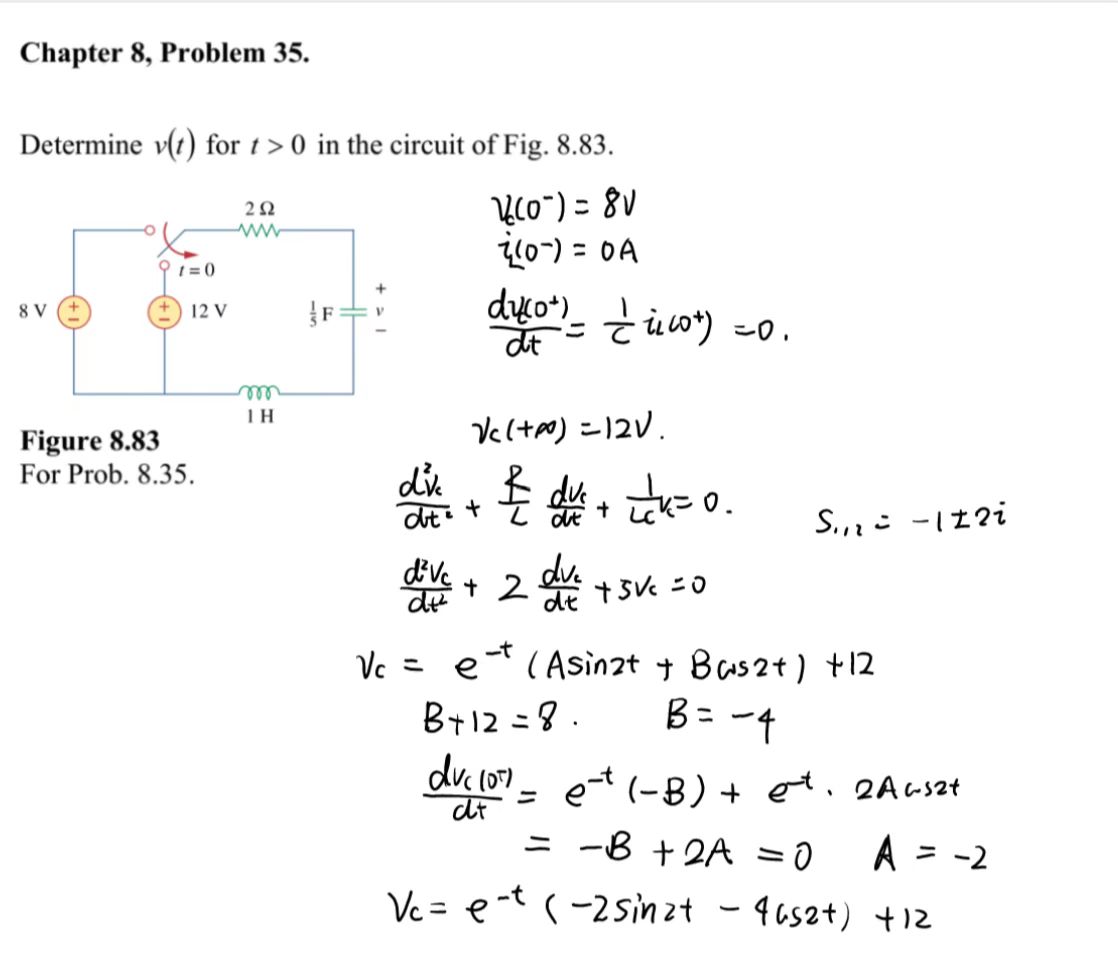 Chapter 8, Problem 35.
Determine v(t) for t > 0 in the circuit of Fig. 8.83.
2 Ω
t = 0
8 V
+
−
+
−
12 V
1/5 F
+
v
−
1 H
Figure 8.83
For Prob. 8.35.
Vc(0⁻) = 8V
iL(0⁻) = 0A
dVc(0⁺)/dt = 1/C iL(0⁺) = 0.
Vc(+∞) = 12V.
d²Vc/dt² + R/L dVc/dt + 1/LC Vc = 0.
S₁,₂ = -1±2i
d²Vc/dt² + 2 dVc/dt + 5Vc = 0
Vc = e⁻ᵗ (Asin2t + Bcos2t) +12
B+12 = 8. B = -4
dVc(0⁺)/dt = e⁻ᵗ (-B) + e⁻ᵗ. 2Acos2t
= -B + 2A = 0 A = -2
Vc = e⁻ᵗ (-2sin2t - 4cos2t) +12